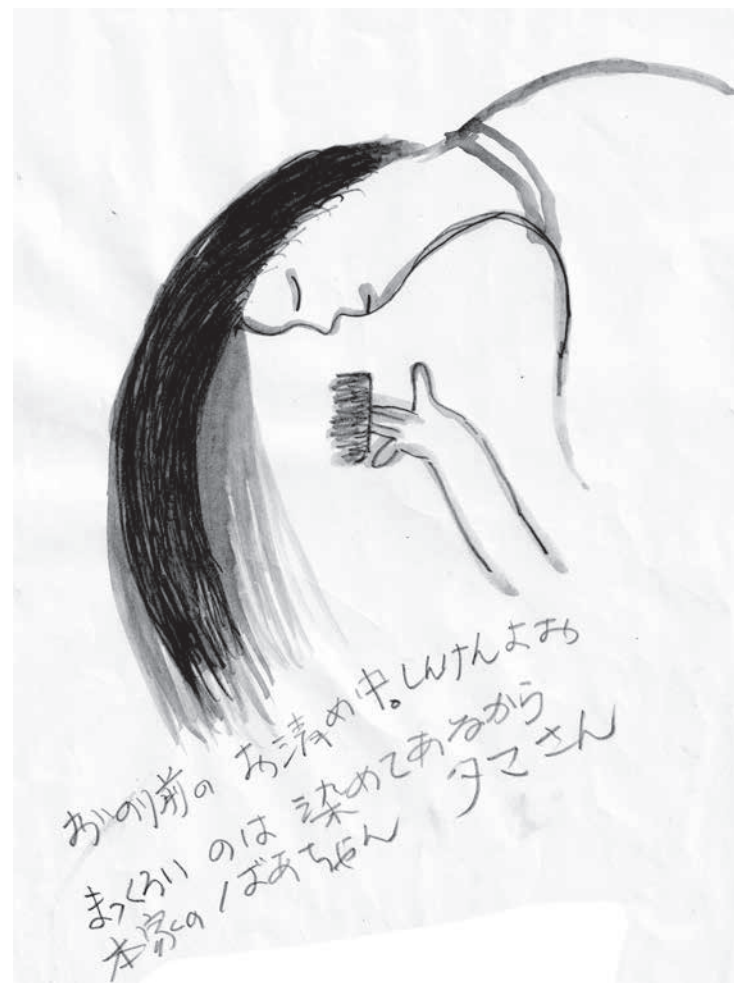 おいのり前の お清め中。しんけんよお
まっくろい のは 染めてあるから
本家の ばあちゃん タマさん